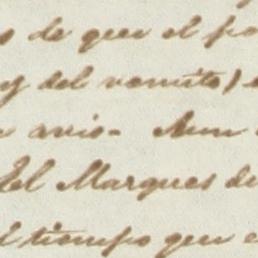 s de que el po
y del vomito)
avio- Aun
El Marques de
el tiempo que e